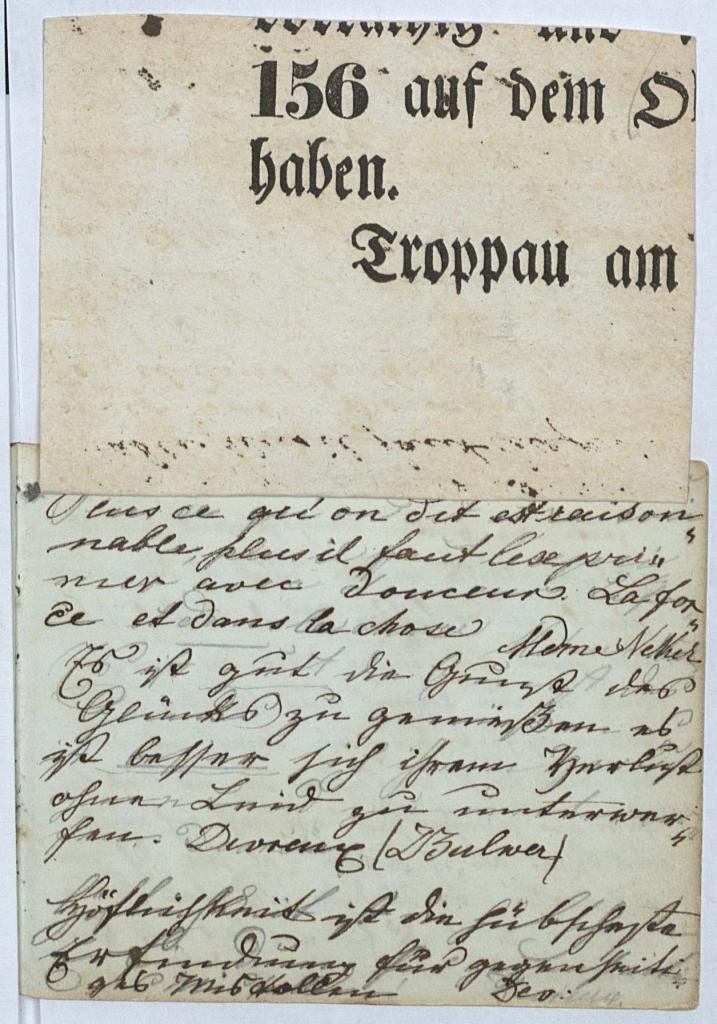 156 auf dem
haben.
Troppau am
Plus ce qu'on dit est raison„
nable, plus il faut l'expri„
mer avec douceur. La for„
ce et dans la chose Mdme Neker
Es ist gut die Gunst des
Glücks zu genießen es
ist besser sich ihrem Verlust
ohne Leid zu unterwer„
fen. Devreux (Bulwer)
Höflichkeit ist die hübscheste
Erfindung für gegenseiti„
ges Misfallen Dev.